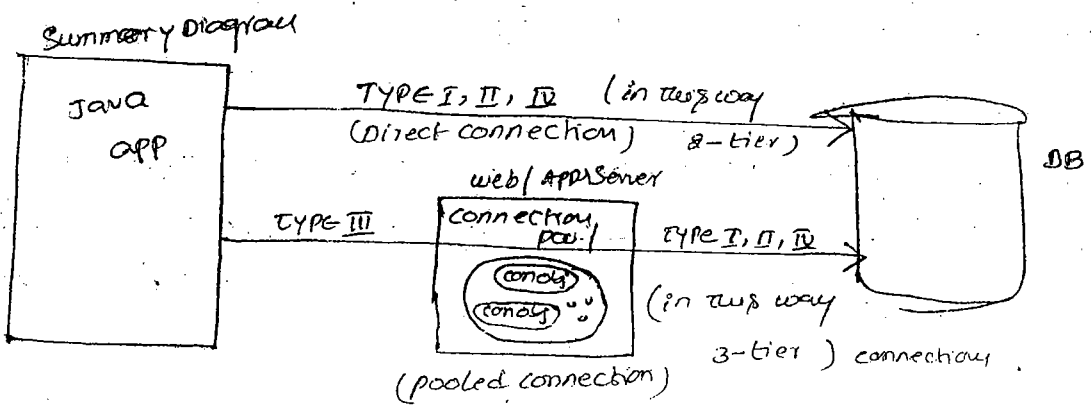 Summary Diagram
Java
app
TYPE I, II, IV (in this way
(Direct connection) 2-tier)
DB
web/APP Server
TYPE III
connection
pool
TYPE I, II, IV
conobj
conobj
(in this way
3-tier) connection
(pooled connection)